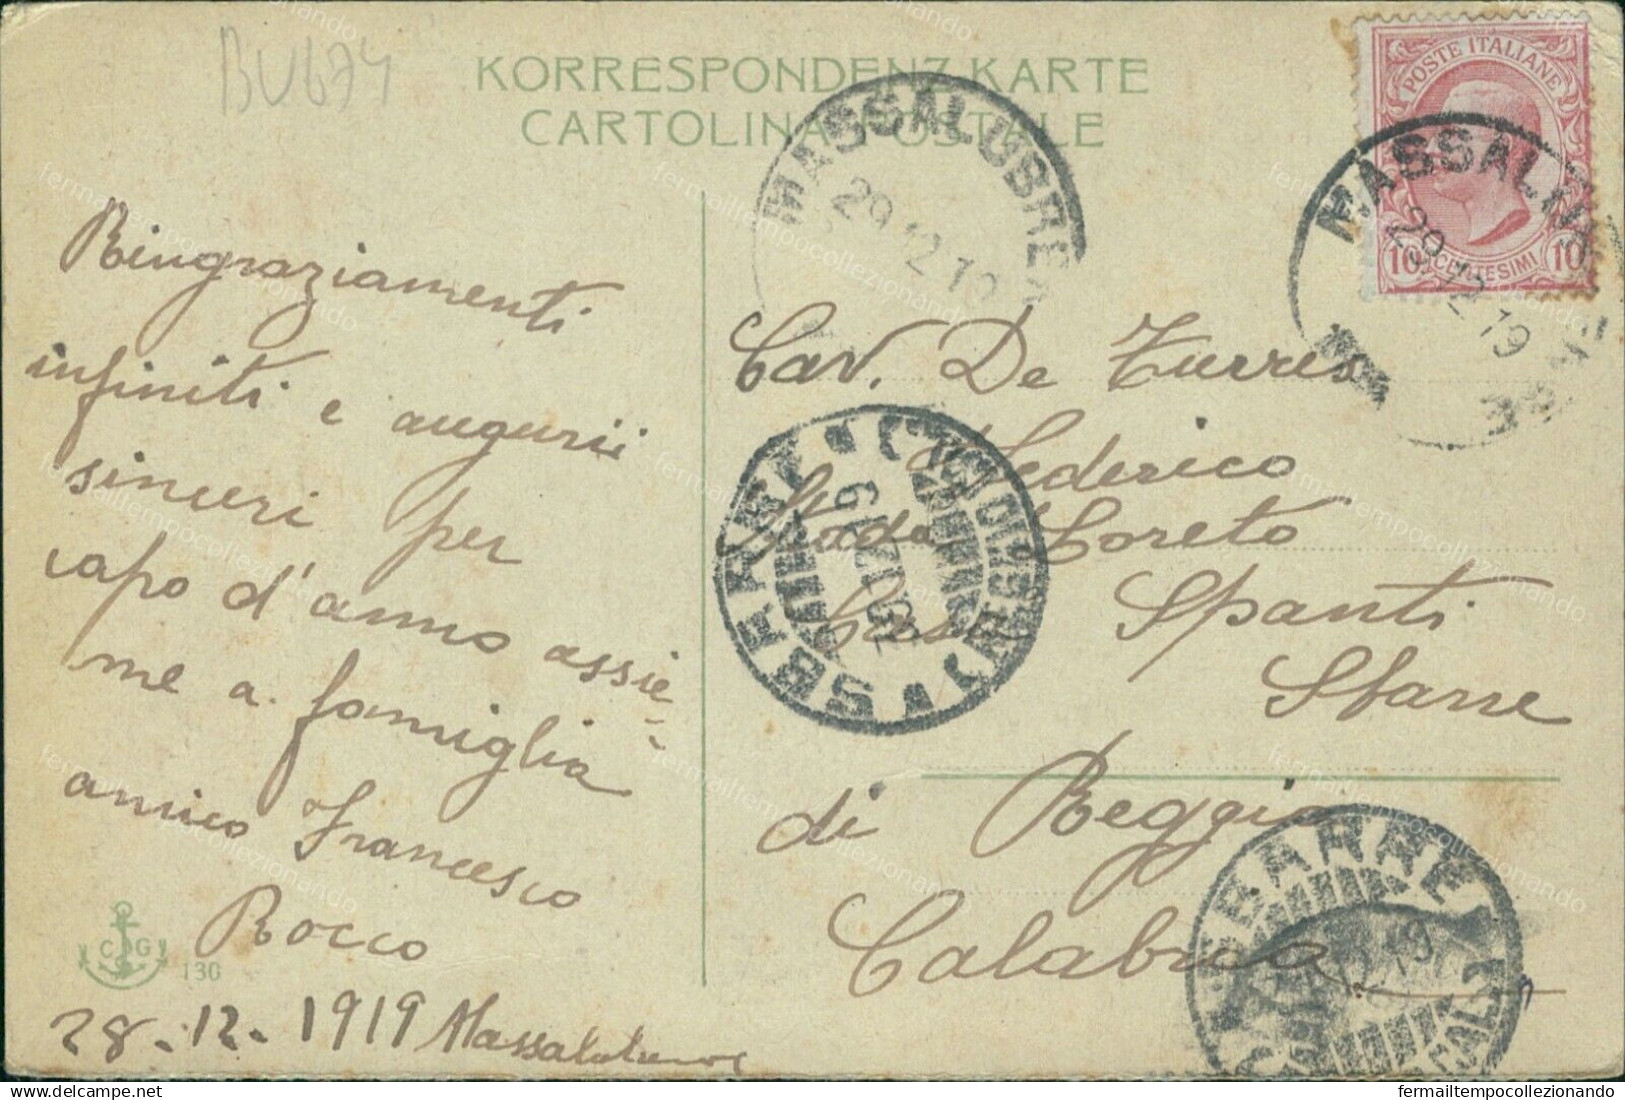 BU674
KORRESPONDENZ-KARTE
CARTOLINA POSTALE
POSTE ITALIANE
10 CENTESIMI 10
MASSALUBRE
29 12 19
MASSALUBRE
29 12 19
Ringraziamenti
infiniti e augurii
sinceri per
capo d'anno assie=
me a famiglia
amico Francesco
Rocco
28.12.1919 Massalubrense
C G
130
Cav. De Turres
Federico
Strada Loreto
Casa Spanti
Sbarre
di Reggio
Calabria
SBARRE
12 19
SBARRE
CALA
12.19
fermailtempocollezionando